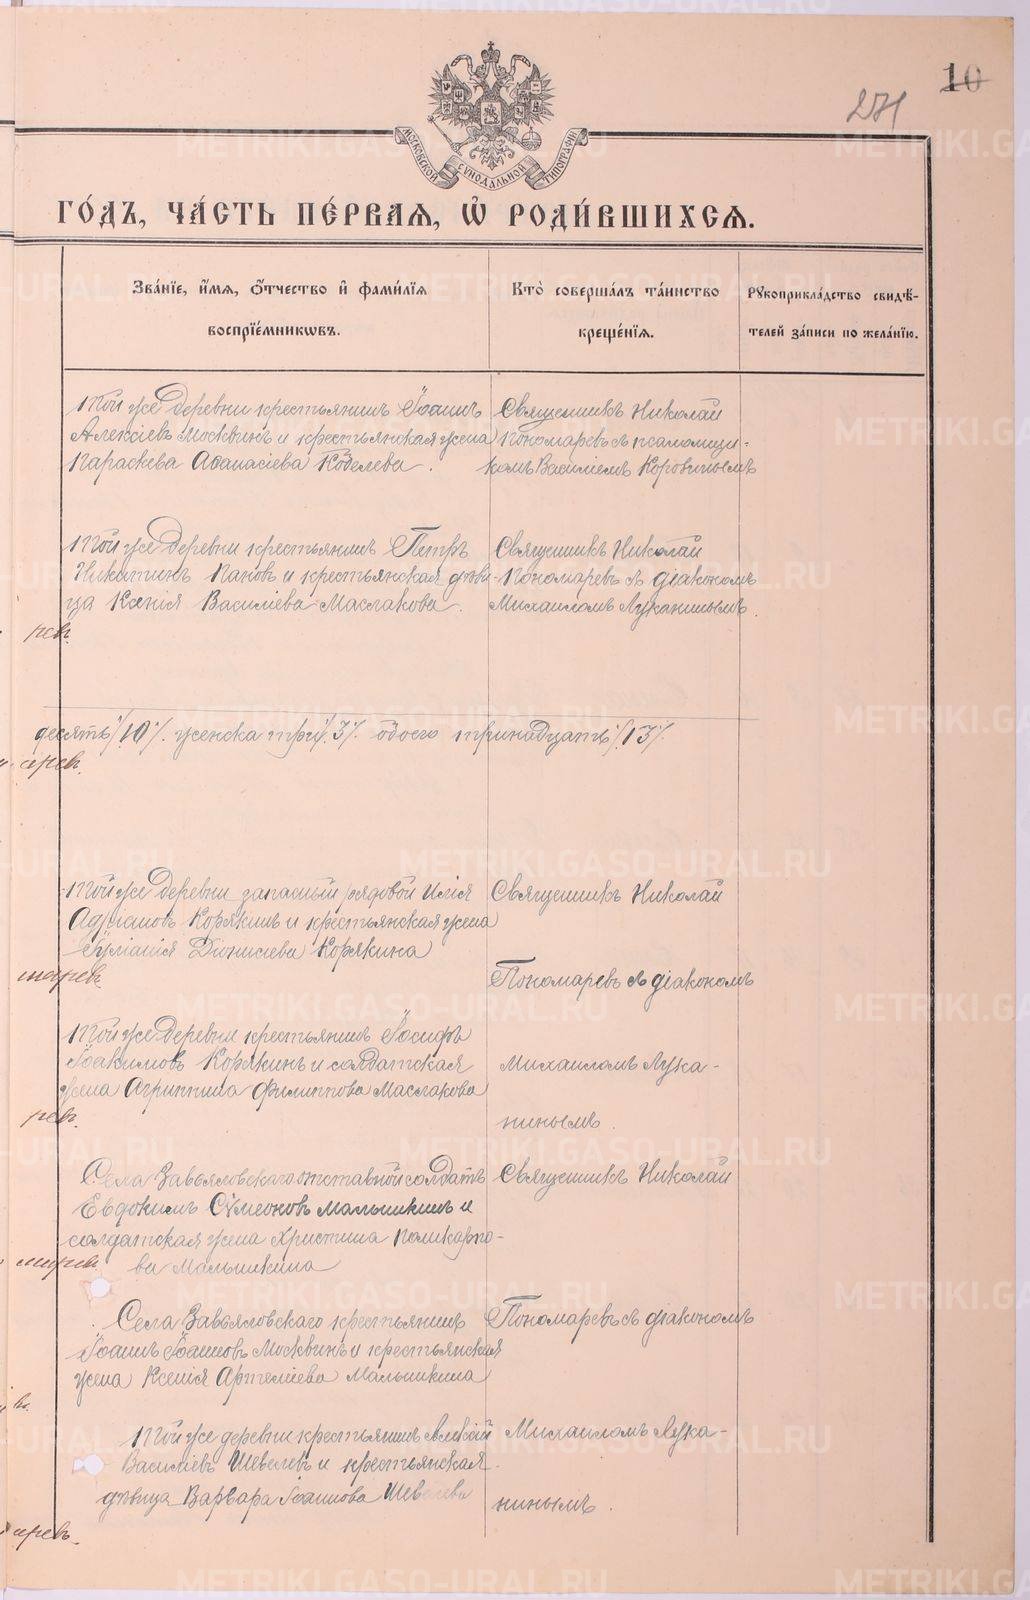 10
271
МОСКОВСКОЙ СѴНОДАЛЬНОЙ ТИПОГРАФІИ
ГО́ДЪ, ЧА́СТЬ ПЕ́РВАЯ, Ѽ РОДИ́ВШИХСЯ.
Зва́нїе, и҆́мѧ, ѻ҆́тчество и҆ фами́лїѧ
воспрїе́мникѡвъ.
Кто̀ соверша́лъ та́инство
креще́нїѧ.
Рꙋкоприкла́дство свидѣ́-
телей за́писи по жела́нїю.
Той же деревни крестьянинъ Іоаннъ
Алексіевъ Москвинъ и крестьянская жена
Параскева Аѳанасіева Кобелева.
Священникъ Николай
Пономаревъ съ псаломщи-
комъ Василіемъ Коровинымъ
Той же деревни крестьянинъ Петръ
Никитинъ Пановъ и крестьянская дѣви-
ца Ксенія Василіева Маслакова.
Священникъ Николай
Пономаревъ съ діакономъ
Михаиломъ Луканинымъ.
рев.
десять /10/. женска три /3/. обоего тринадцать /13/.
Той же деревни запасный рядовой Илія
Адріановъ Корякинъ и крестьянская жена
Іуліанія Діонисіева Корякина
Священникъ Николай
Пономаревъ съ діакономъ
Той же деревни крестьянинъ Іосифъ
Іоакимовъ Корякинъ и солдатская
жена Агриппина Филиппова Маслакова
Михаиломъ Лука-
нинымъ.
рев.
Села Завьяловскаго отставной солдатъ
Евдокимъ Сѵмеоновъ Мальшикинъ и
солдатская жена Христина Поликарпо-
ва Мальшикина
Священникъ Николай
Села Завьяловскаго крестьянинъ
Іоаннъ Іоанновъ Москвинъ и крестьянская
жена Ксенія Артеміева Мальшикина
Пономаревъ съ діакономъ
Той же деревни крестьянинъ Алексій
Василіевъ Шевелевъ и крестьянская
дѣвица Варвара Іоаннова Шевелева
Михаиломъ Лука-
нинымъ.
METRIKI.GASO-URAL.RU